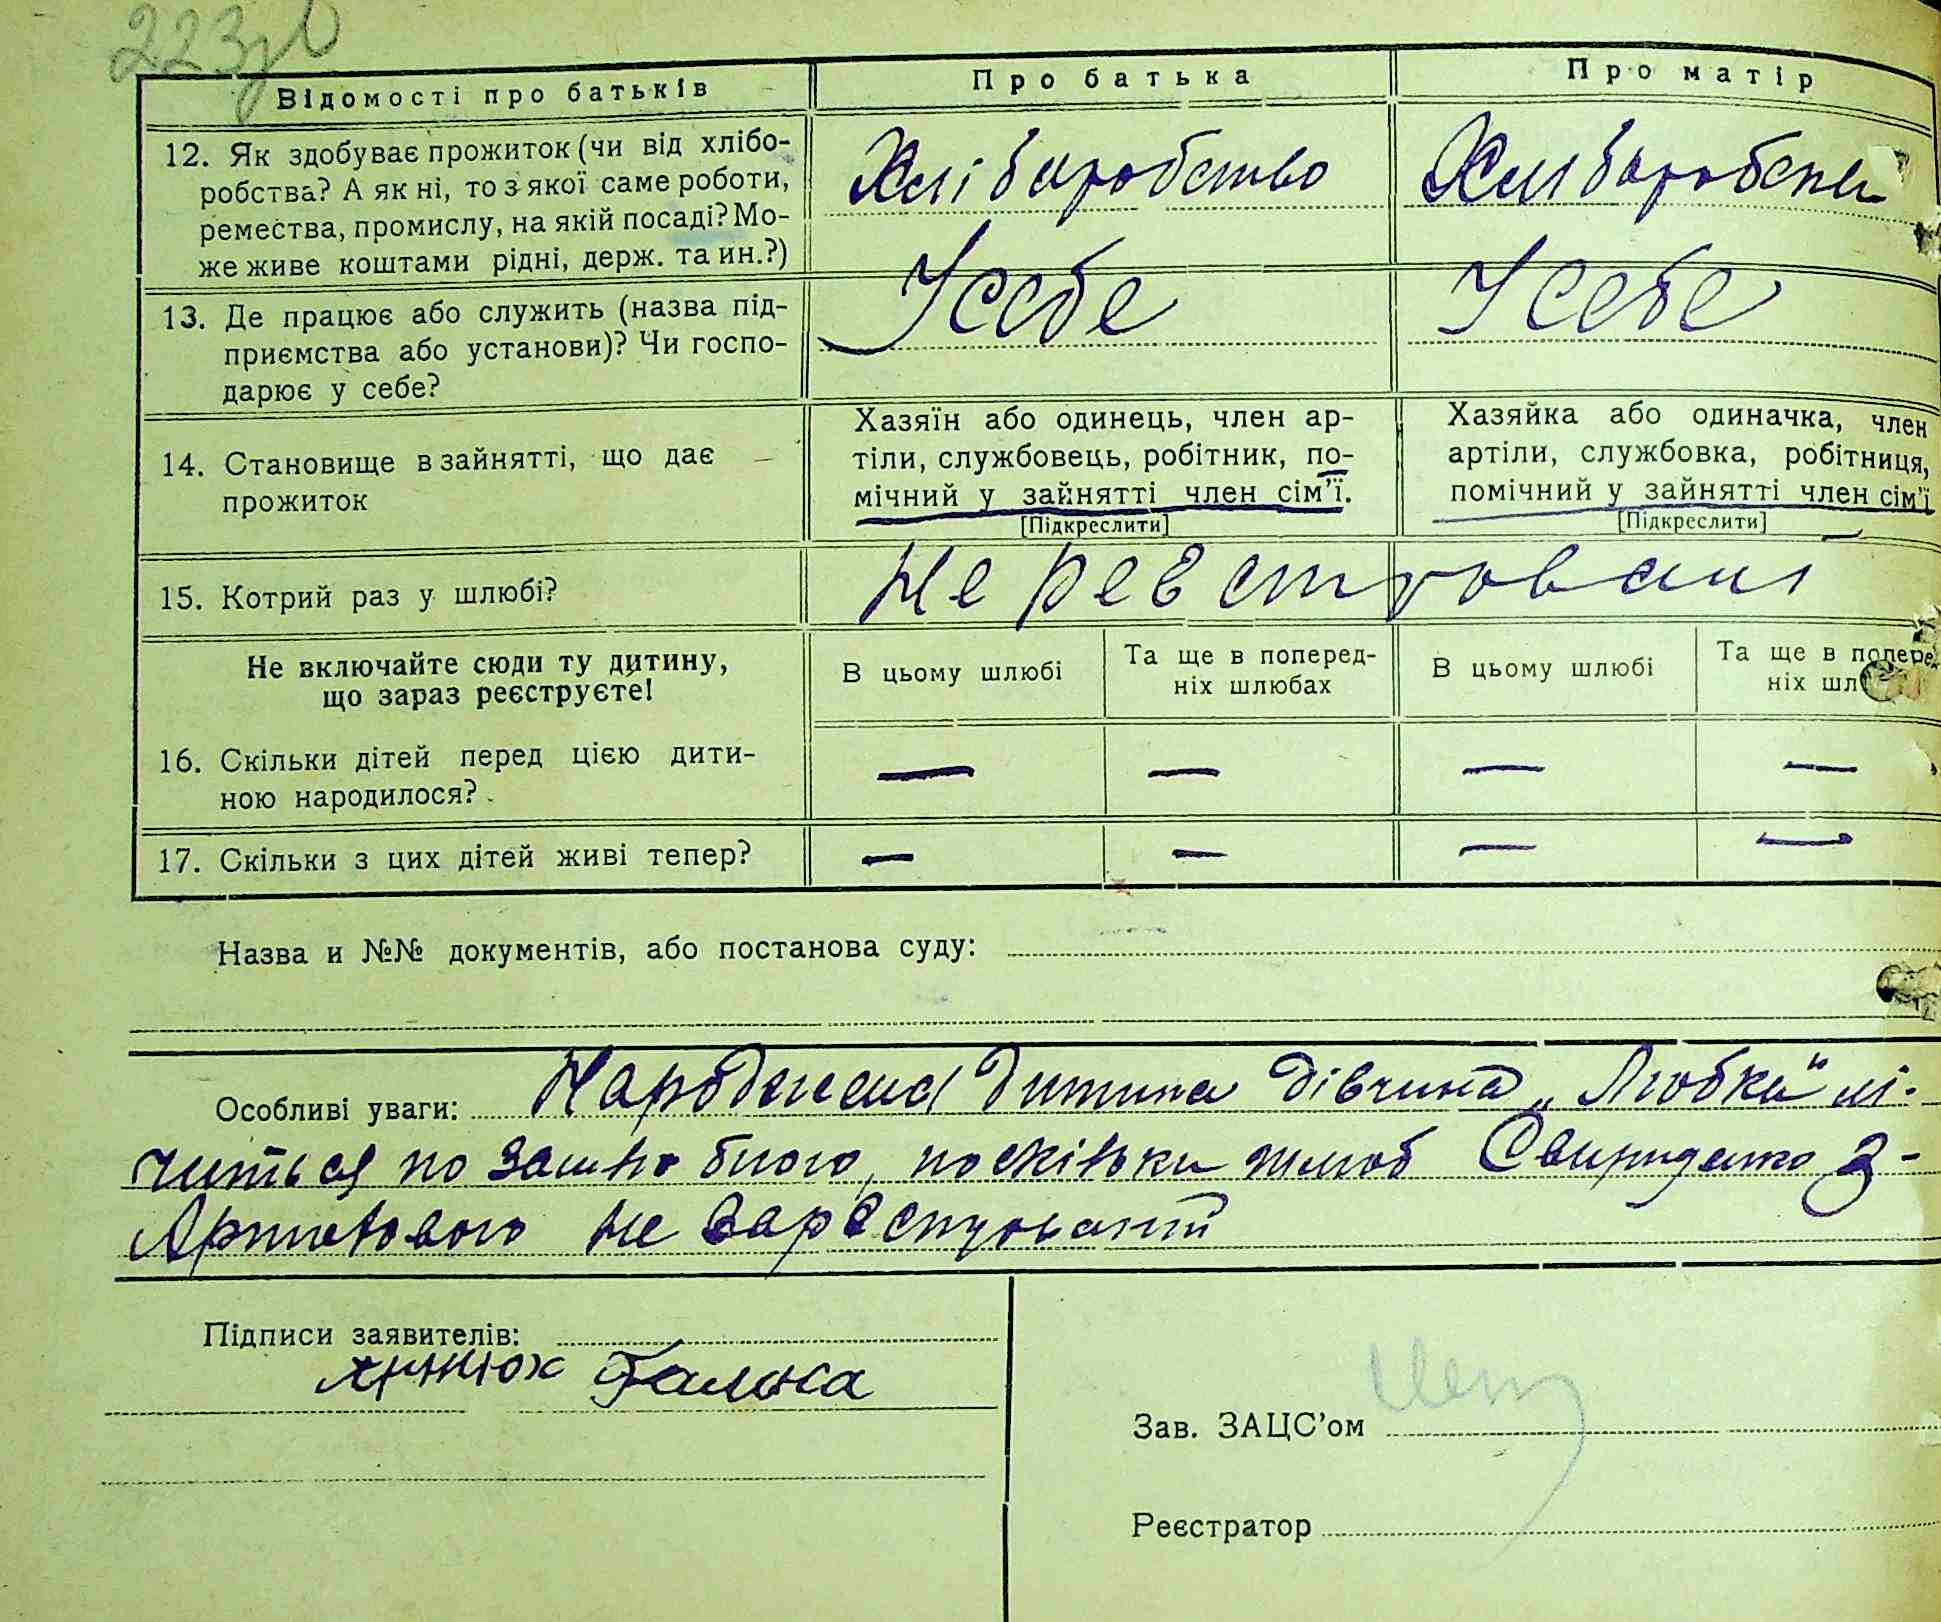 223зв
Відомості про батьків
Про батька
Про матір
12. Як здобуває прожиток (чи від хлібо-
робства? А як ні, то з якої саме роботи,
ремества, промислу, на якій посаді? Мо-
же живе коштами рідні, держ. та ин.?)
Хліборобство
Хліборобст
13. Де працює або служить (назва під-
приємства або установи)? Чи госпо-
дарює у себе?
У себе
У себе
14. Становище в зайнятті, що дає
прожиток
Хазяїн або одинець, член ар-
тіли, службовець, робітник, по-
мічний у зайнятті член сім'ї.
[Підкреслити]
Хазяйка або одиначка, член
артіли, службовка, робітниця,
помічний у зайнятті член сім'ї
[Підкреслити]
15. Котрий раз у шлюбі?
Не реєстровані
Не включайте сюди ту дитину,
що зараз реєструєте!
В цьому шлюбі
Та ще в поперед-
ніх шлюбах
В цьому шлюбі
Та ще в поперед
ніх шл
16. Скільки дітей перед цією дити-
ною народилося?
— — — —
17. Скільки з цих дітей живі тепер?
— — — —
Назва и №№ документів, або постанова суду:
Особливі уваги: дитина дівчина „Любка" лі-
читься по, поскільки шлюб Свириденко з-
не зареєстрований
Підписи заявителів:
Галька
Зав. ЗАЦС'ом
Реєстратор